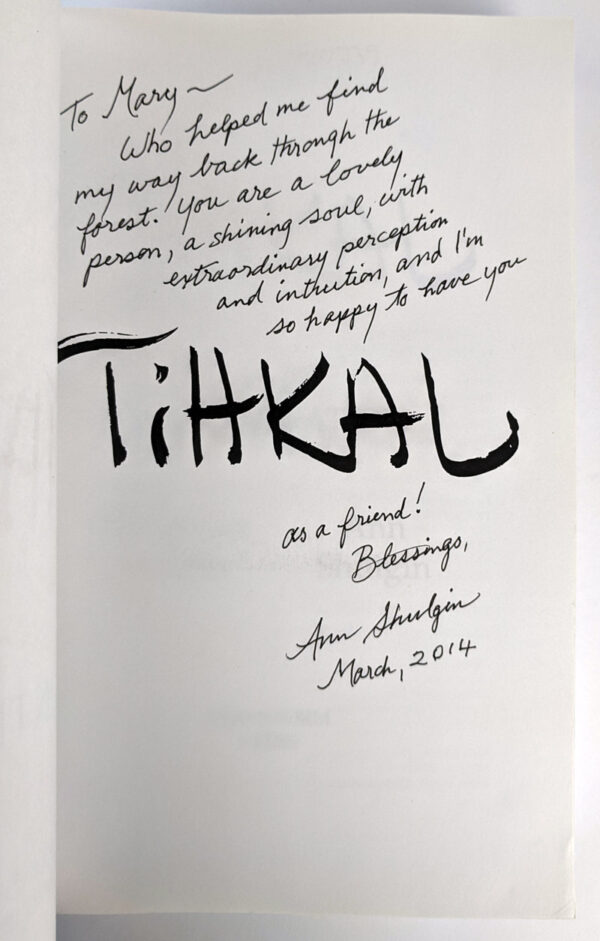 To Mary ~
Who helped me find
my way back through the
forest. You are a lovely
person, a shining soul, with
extraordinary perception
and intuition, and I'm
so happy to have you
TiHKAL
as a friend!
Blessings,
Ann Shulgin
March, 2014